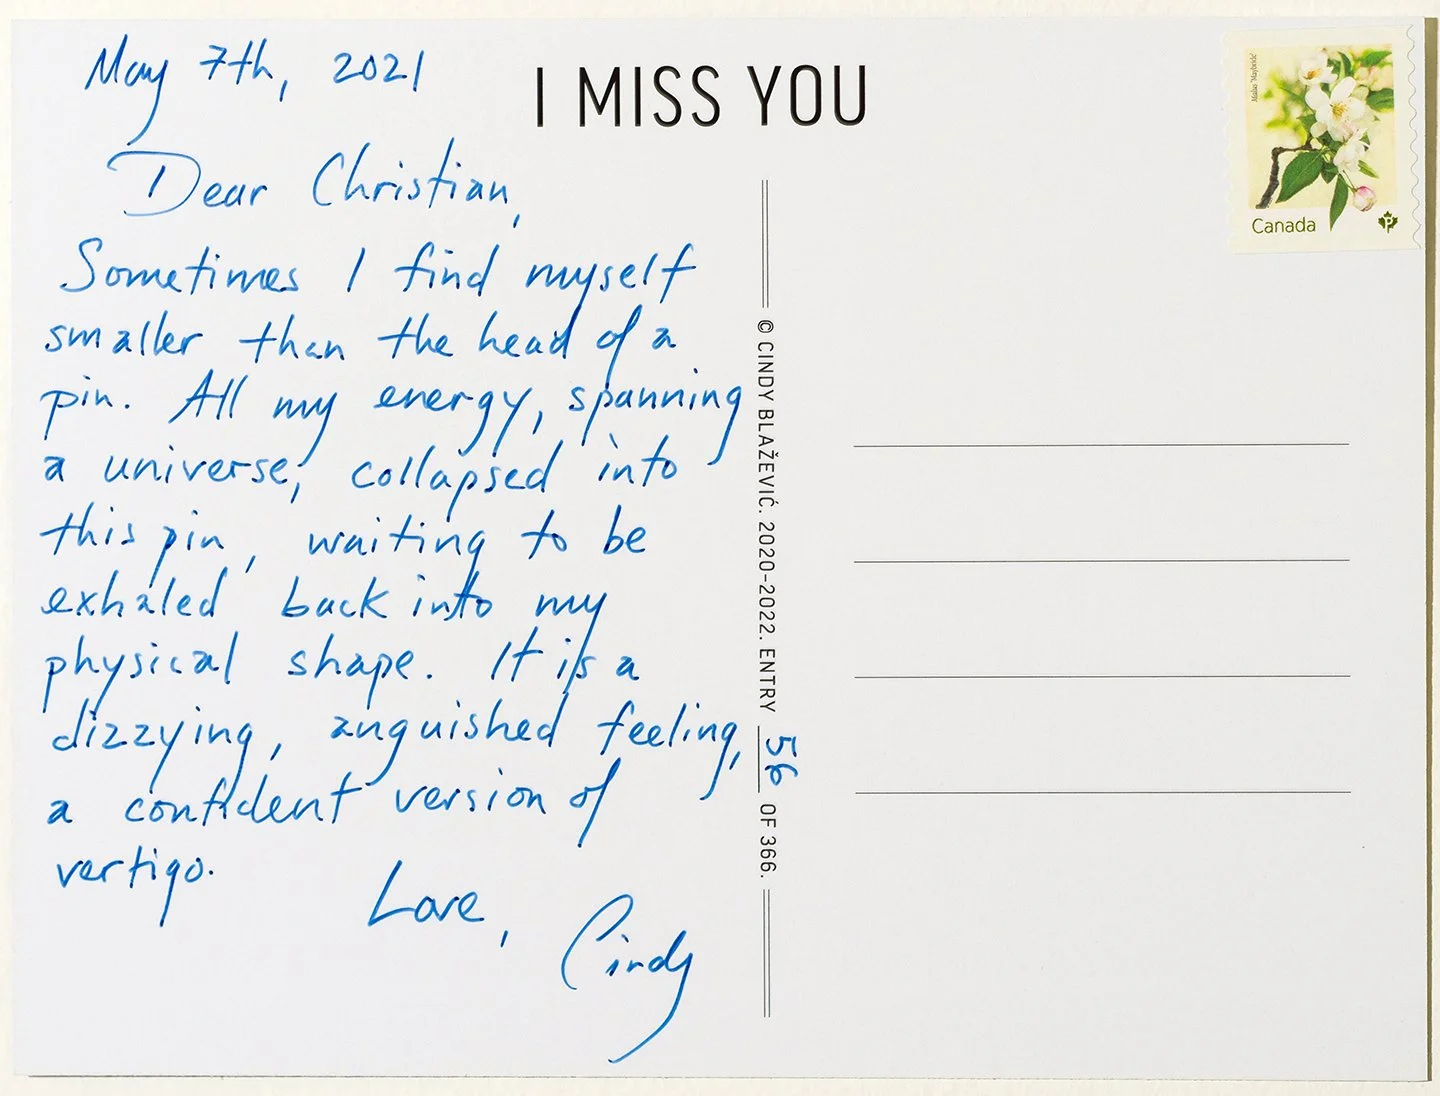 May 7th, 2021
I MISS YOU
Dear Christian,
Sometimes I find myself
smaller than the head of a
pin. All my energy, spanning
a universe, collapsed into
this pin, waiting to be
exhaled back into my
physical shape. It is a
dizzying, anguished feeling,
a confident version of
vertigo.
Love,
Cindy
© CINDY BLAŽEVIĆ. 2020-2022. ENTRY 56 OF 366.
Malus 'Maybride'
Canada
P